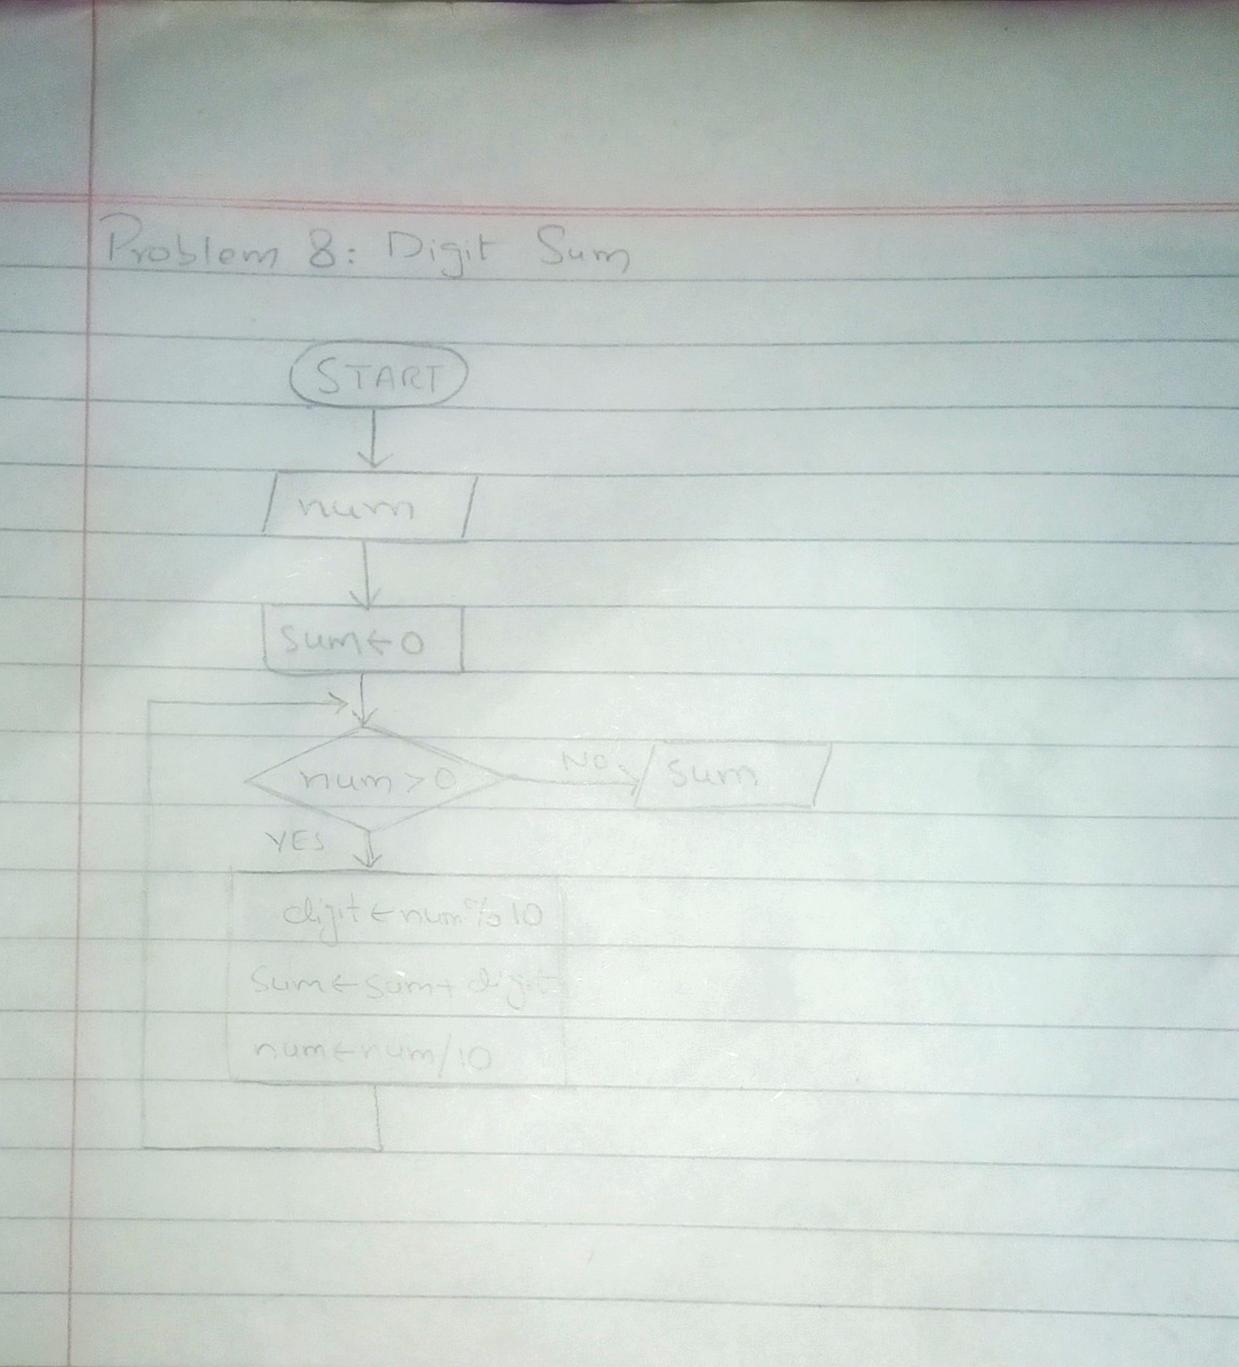 Problem 8: Digit Sum
START
num
sum←0
num>0
NO
sum
YES
digit←num%10
sum←sum+digit
num←num/10